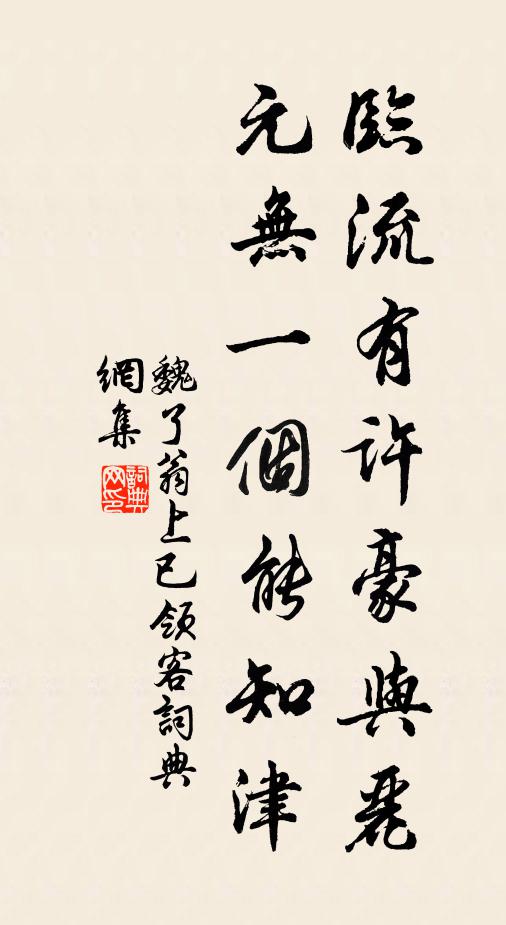 臨流有許豪與麗
元無一個能知津
魏了翁上巳領客詞典
網集
詞典網印